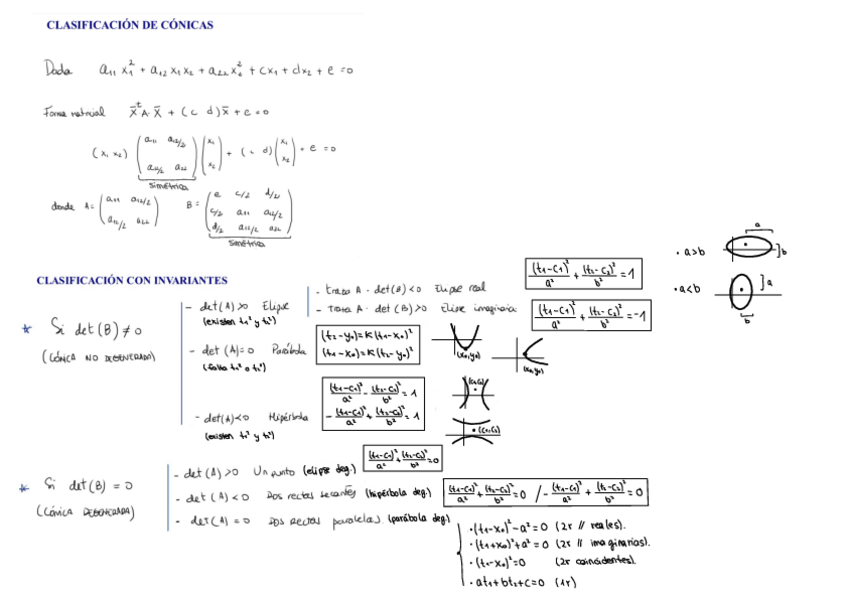 CLASIFICACIÓN DE CÓNICAS
Dada a₁₁ x₁² + a₁₂ x₁x₂ + a₂₂ x₂² + cx₁ + dx₂ + e = 0
Forma matricial x̄ᵗ A x̄ + (c d) x̄ + e = 0
(x₁ x₂) (a₁₁ a₁₂/₂ a₁₂/₂ a₂₂) (x₁ x₂) + (c d) (x₁ x₂) + e = 0
simétrica
donde A = (a₁₁ a₁₂/₂ a₁₂/₂ a₂₂) B = (e c/2 d/2 c/2 a₁₁ a₁₂/2 d/2 a₁₂/2 a₂₂)
simétrica
CLASIFICACIÓN CON INVARIANTES
* Si det(B) ≠ 0
(CÓNICA NO DEGENERADA)
- det(A)>0 Elipse
(existen t₁² y t₂²)
- traza A · det(B) < 0 Elipse real
(t₁-c₁)²/a² + (t₂-c₂)²/b² = 1
· a>b
a
b
· a<b
a
b
- Traza A · det(B) > 0 Elipse imaginaria
(t₁-c₁)²/a² + (t₂-c₂)²/b² = -1
- det(A)=0 Parábola
(falta t₁² o t₂²)
(t₂-y₀)=K(t₁-x₀)²
(t₁-x₀)=K(t₂-y₀)²
(x₀,y₀)
(x₀,y₀)
- det(A)<0 Hipérbola
(existen t₁² y t₂²)
(t₁-c₁)²/a² - (t₂-c₂)²/b² = 1
-(t₁-c₁)²/a² + (t₂-c₂)²/b² = 1
(c₁,c₂)
(c₁,c₂)
* Si det(B) = 0
(CÓNICA DEGENERADA)
- det(A) > 0 Un punto (elipse deg.)
(t₁-c₁)²/a² + (t₂-c₂)²/b² = 0
- det(A) < 0 Dos rectas secantes (hipérbola deg.)
(t₁-c₁)²/a² + (t₂-c₂)²/b² = 0 / -(t₁-c₁)²/a² + (t₂-c₂)²/b² = 0
- det(A) = 0 Dos rectas paralelas (parábola deg.)
· (t₁-x₀)² - a² = 0 (2r // reales).
· (t₁+x₀)² + a² = 0 (2r // imaginarias).
· (t₁-x₀)² = 0 (2r coincidentes).
· at₁ + bt₂ + c = 0 (1r)